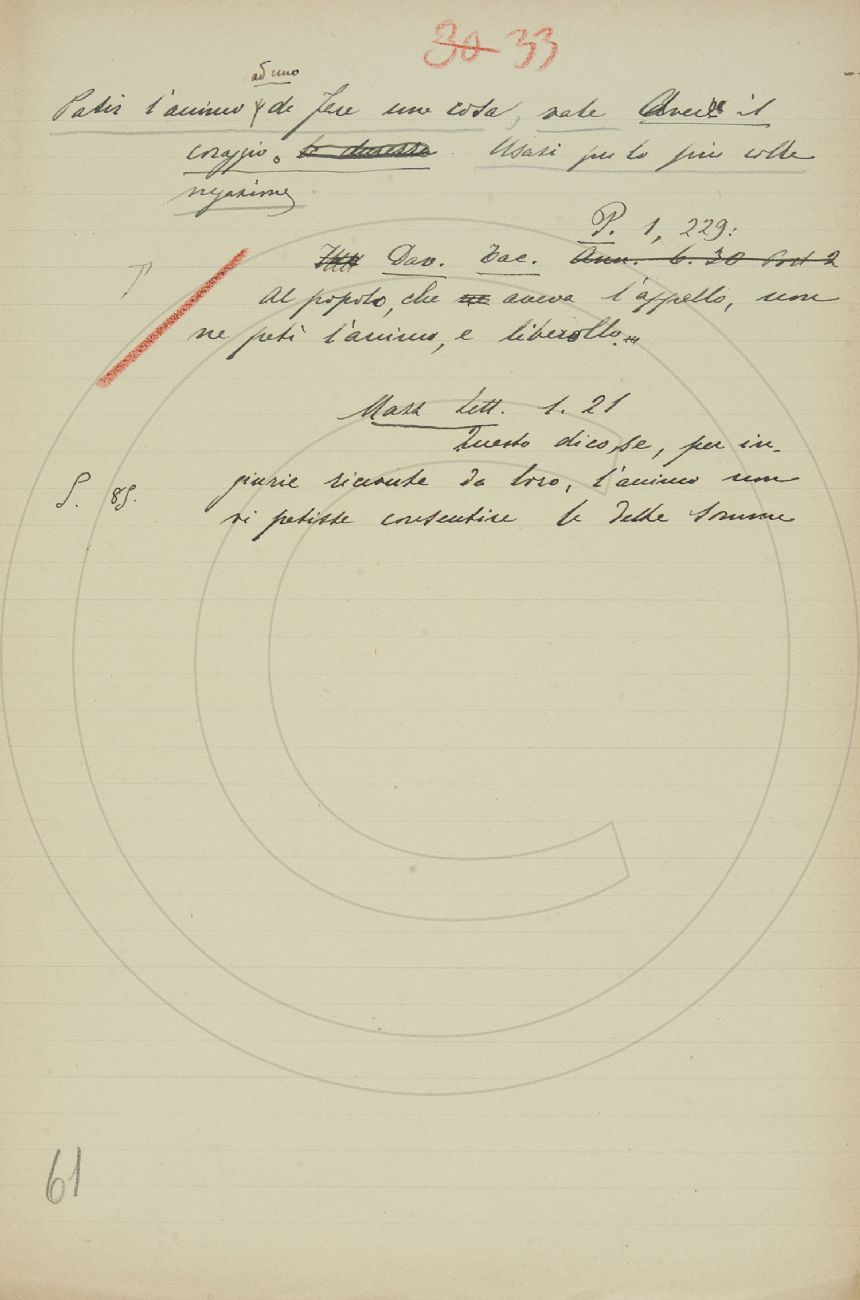 30 33
ad uno
Patir l'animo di fare una cosa, vale Avere il
coraggio. la durezza. Usasi per lo più colla
negazione
P. 1, 229:
T Dav. Tac. Ann. 6. 30 Post 2
Al popolo, che ne aveva l'appello, non
ne patì l'animo, e liberollo...
Mazz Lett. 1. 21
Questo dico, se, per in-
S. 85. giurie ricevute da loro, l'animo non
vi patisse consentire le dette somme
61